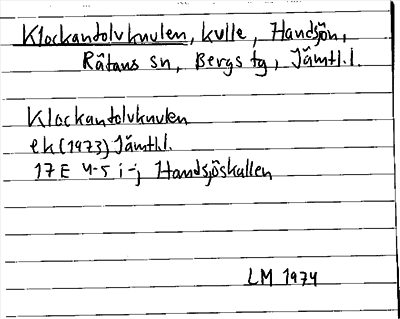 Klockantolvknulen, kulle, Handsjön,
Rätans sn, Bergs tg, Jämtl.l.
Klockantolvknulen
ek (1973) Jämtl.
17E 4-5 i-j Handsjöskallen
LM 1974